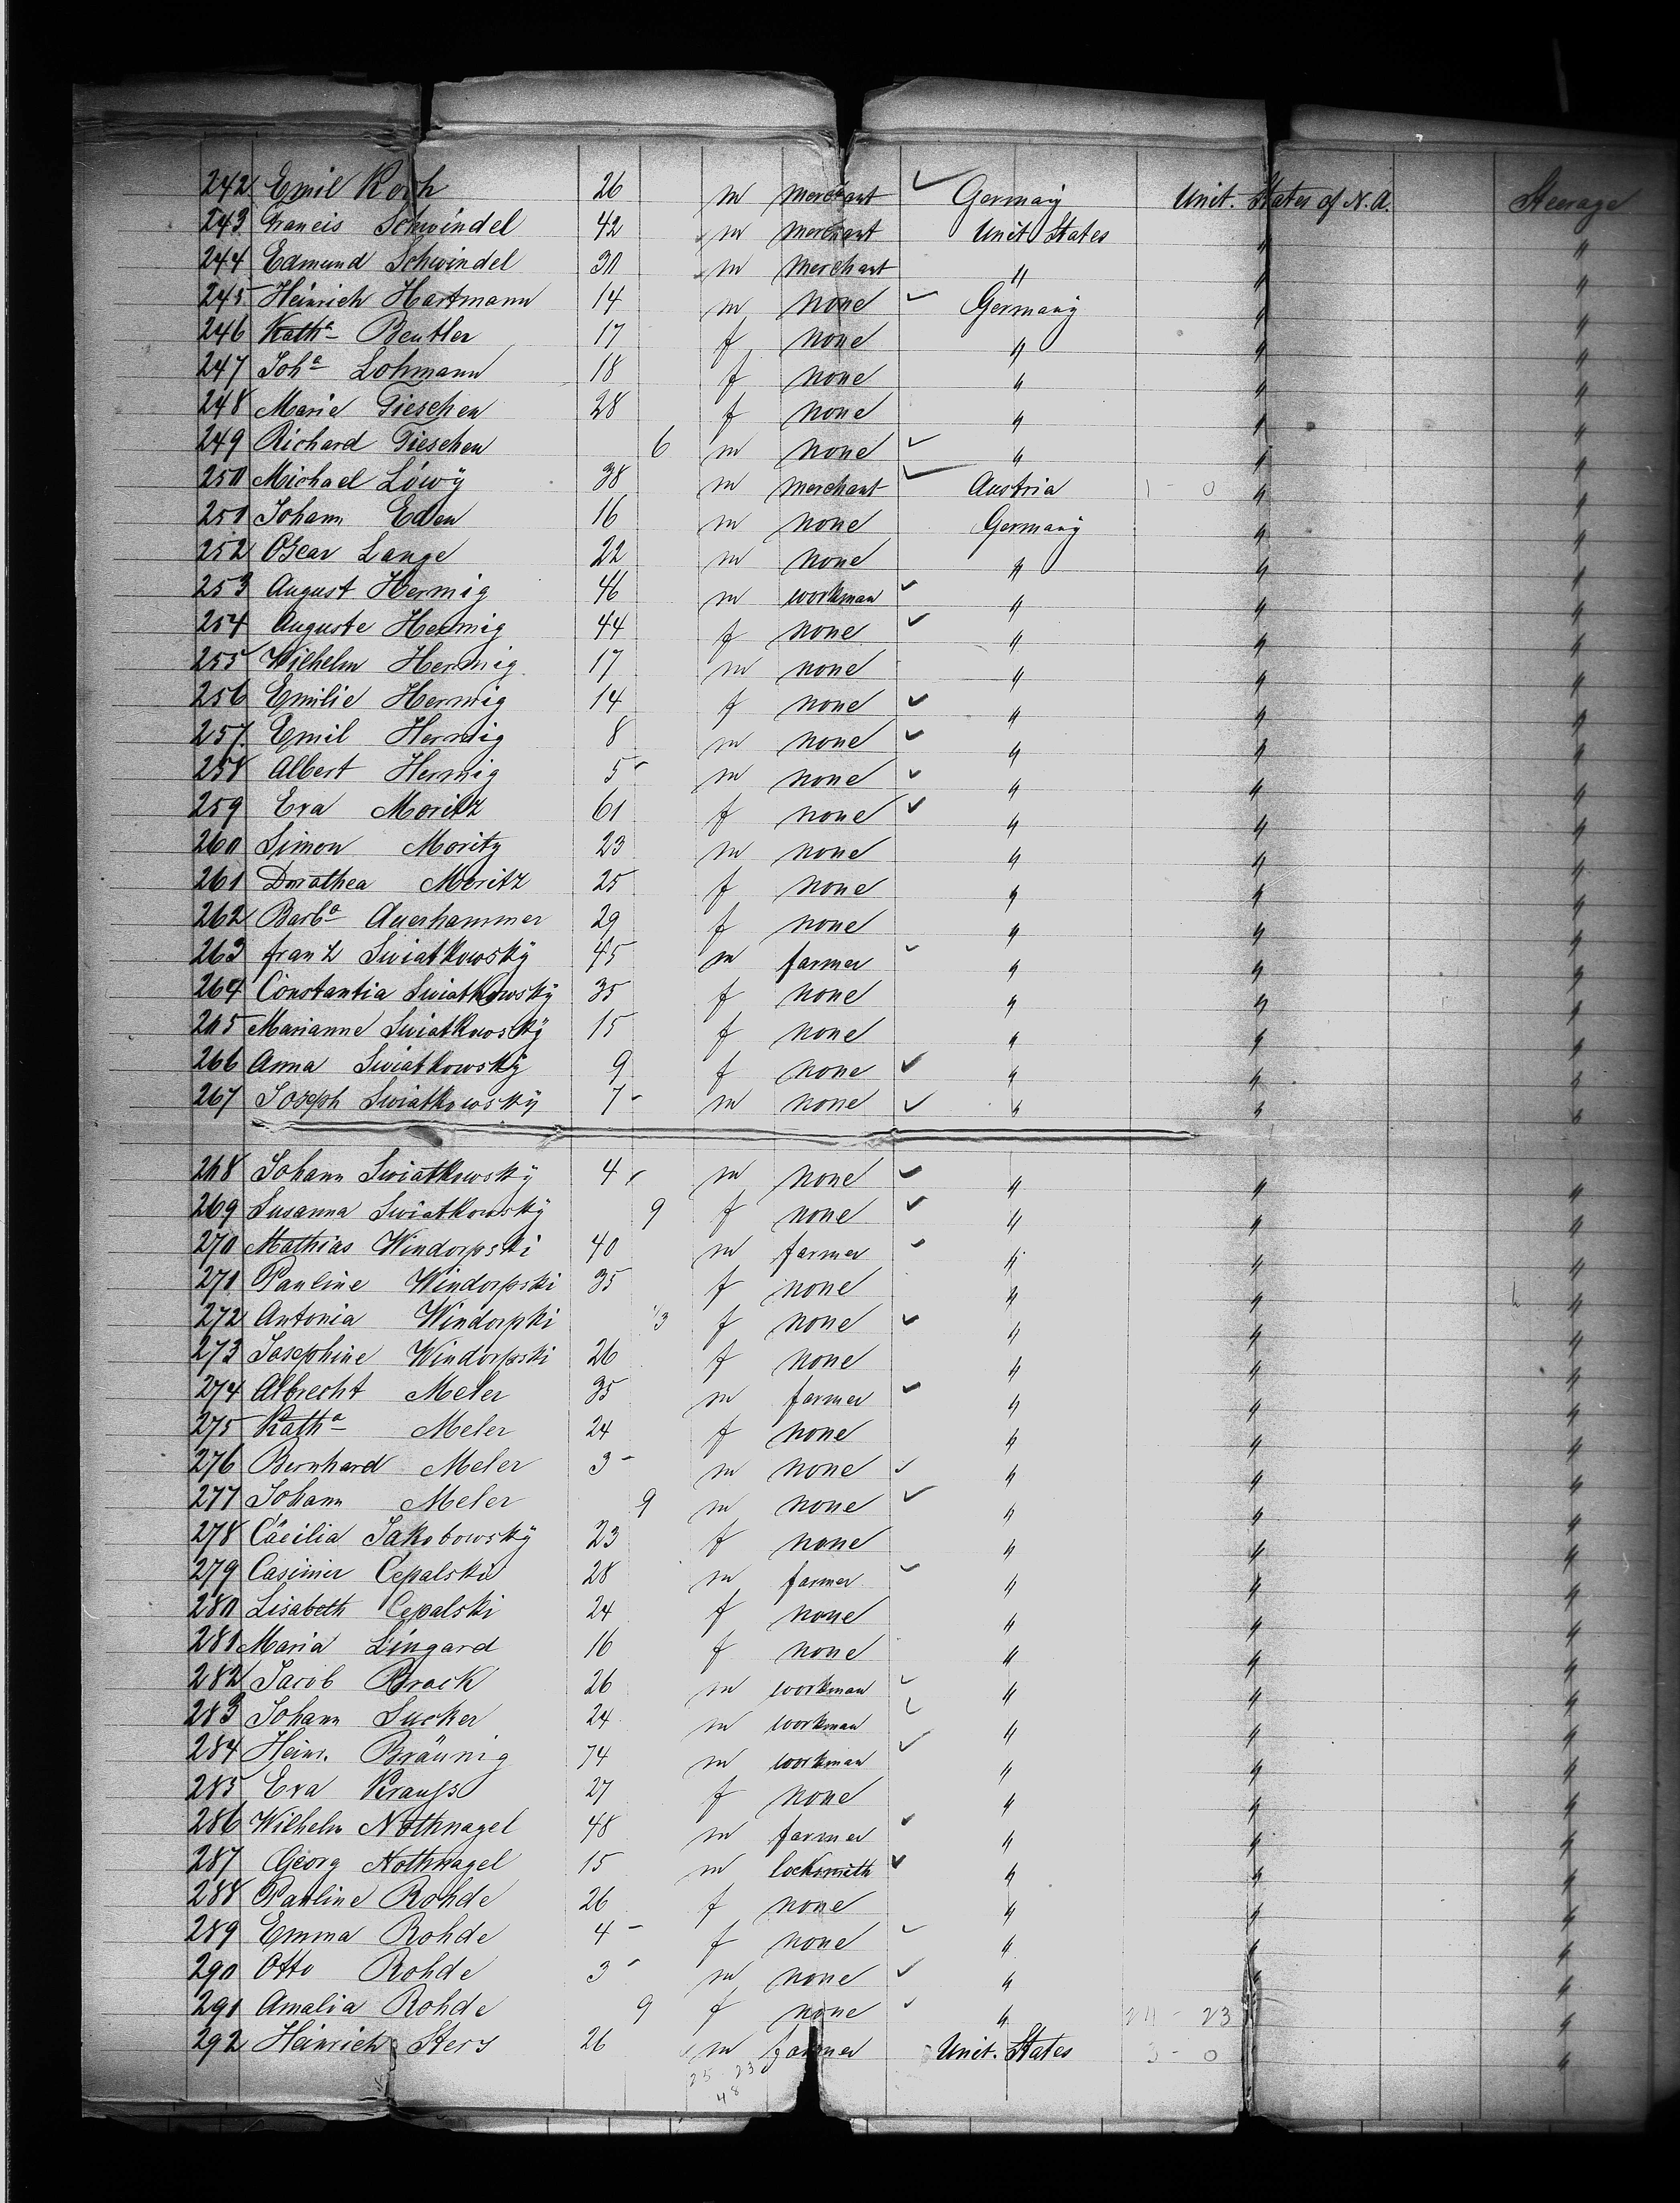 242 Emil Koch 26 m merchant ✓ Germany Unit. States of N. A. Steerage
243 Francis Schwindel 42 m merchant Unit States " "
244 Edmund Schwindel 30 m merchant " " "
245 Heinrich Hartmann 14 m none ✓ Germany " "
246 Kathª Beutler 17 f none " " "
247 Johª Lohmann 18 f none " " "
248 Marie Tieschen 28 f none " " "
249 Richard Tieschen 6 m none ✓ " " "
250 Michael Löwÿ 38 m merchant ✓ Austria 1 - 0 " "
251 Johann Eden 16 m none Germany " "
252 Oscar Lange 22 m none " " "
253 August Hermig 46 m workman ✓ " " "
254 Auguste Hermig 44 f none ✓ " " "
255 Wilhelm Hermig 17 m none " " "
256 Emilie Hermig 14 f none ✓ " " "
257 Emil Hermig 8 m none ✓ " " "
258 Albert Hermig 5 - m none ✓ " " "
259 Eva Moritz 61 f none ✓ " " "
260 Simon Moritz 23 m none " " "
261 Dorathea Moritz 25 f none " " "
262 Barbª Auerhammer 29 f none " " "
263 franz Swiatkowskÿ 45 m farmer ✓ " " "
264 Constantia Swiatkowskÿ 35 f none " " "
265 Marianne Swiatkowskÿ 15 f none " " "
266 Anna Swiatkowskÿ 9 f none ✓ " " "
267 Joseph Swiatkowskÿ 7 - m none ✓ " " "
268 Johann Swiatkowskÿ 4 - m none ✓ " " "
269 Susanna Swiatkowskÿ 9 f none ✓ " " "
270 Mathias Windorpski 40 m farmer ✓ " " "
271 Pauline Windorpski 35 f none " " "
272 Antonia Windorpki 3 f none ✓ " " "
273 Josephine Windorpski 26 f none " " "
274 Albrecht Meler 35 m farmer ✓ " " "
275 Kathª Meler 24 f none " " "
276 Bernhard Meler 3 - m none ✓ " " "
277 Johann Meler 9 m none ✓ " " "
278 Cäcilia Jakobowskÿ 23 f none " " "
279 Casimir Cepalski 28 m farmer ✓ " " "
280 Lisabeth Cepalski 24 f none " " "
281 Maria Lingard 16 f none " " "
282 Jacob Brack 26 m workman ✓ " " "
283 Johann Sucker 24 m workman ✓ " " "
284 Heinr. Bräunig 74 m workman ✓ " " "
285 Eva Krauss 27 f none " " "
286 Wilhelm Nothnagel 48 m farmer ✓ " " "
287 Georg Nothnagel 15 m locksmith ✓ " " "
288 Pauline Rohde 26 f none " " "
289 Emma Rohde 4 - f none ✓ " " "
290 Otto Rohde 3 - m none ✓ " " "
291 Amalia Rohde 9 f none ✓ " 24 - 23 " "
292 Heinrich 26 m farmer Unit. States 3 - 0 " "
25 23
48